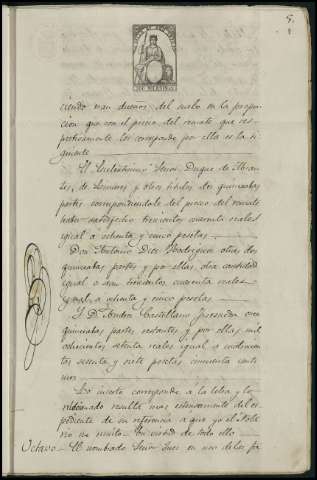 5.
ciendo man dueños del suelo en la propor-
cion que con el precio del remate que res-
pectivamente les corresponde por ella es la si-
guiente
El Excelentisimo Señor Duque de Abran-
tes, de Linares y otros titulos dos quinceabas
partes correspondiendole del precio del remate
haber satisfecho trescientos cuarenta reales
igual a ochenta y cinco pesetas
Don Antonio Dios Rodriguez otras dos
quinceabas partes y por ellas, dia cantidad
igual o sean trescientos cuarenta reales
igual a ochenta y cinco pesetas
Y D. Andres Castellano Junador once
quinceabas partes restantes y por ellas mil
ochocientos setenta reales igual a cuatrocien-
tos sesenta y siete pesetas cincuenta cent-
imos
Lo inserto corresponde a la letra y lo
relacionado resulta mas estensamente del es-
pediente de su referencia a que yo el Nota-
rio me remito. En virtud de todo ello
Octavo El nombrado Señor Juez en uno de los fa